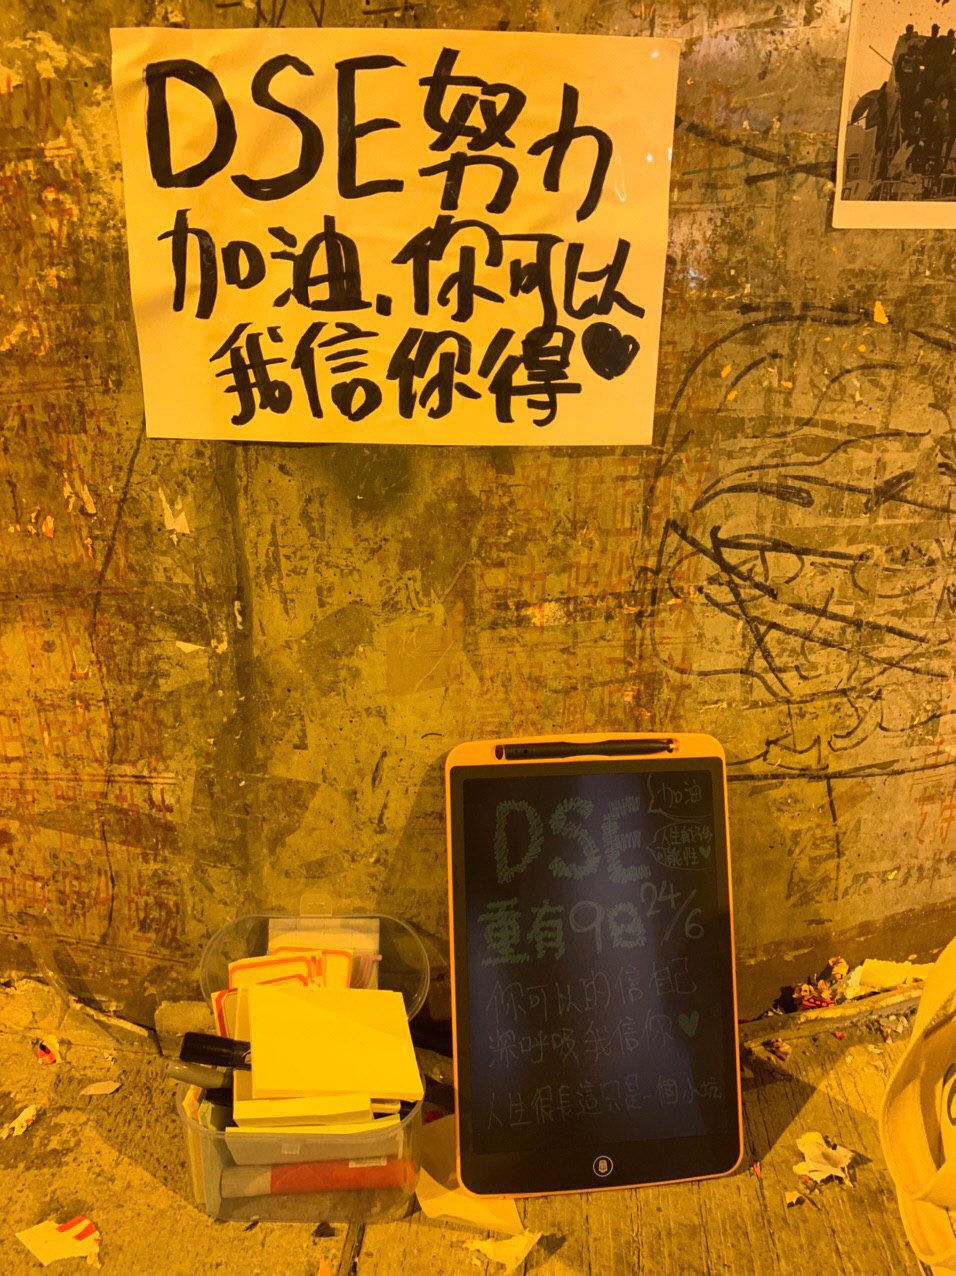 DSE努力
加油,你可以
我信你得♥
DSE
加油
人生有好多
可能性♥
重有9日 24/6
你可以的信自己
深呼吸我信你♥
人生很長這只是一個小坑